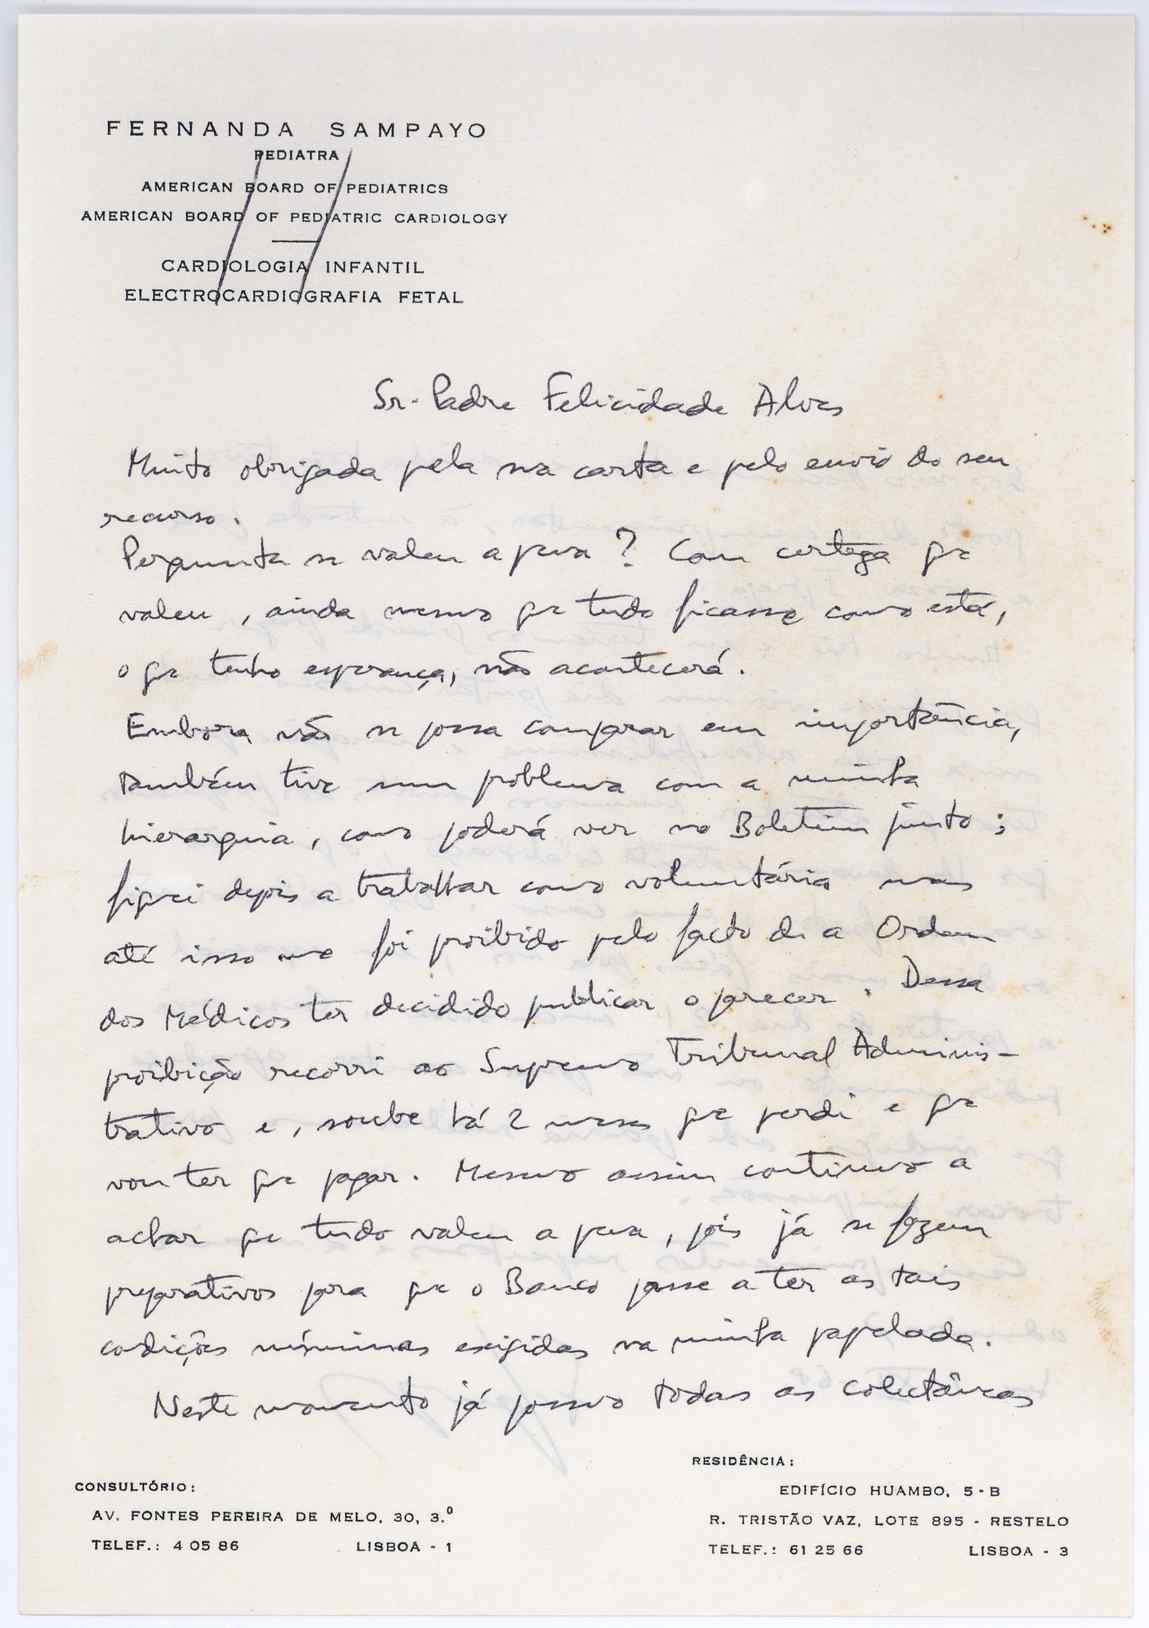 FERNANDA SAMPAYO
PEDIATRA
AMERICAN BOARD OF PEDIATRICS
AMERICAN BOARD OF PEDIATRIC CARDIOLOGY
CARDIOLOGIA INFANTIL
ELECTROCARDIOGRAFIA FETAL
Sr. Padre Felicidade Alves
Muito obrigada pela sua carta e pelo envio do seu
recurso.
Pergunta se valeu a pena? Com certeza que
valeu, ainda mesmo que tudo ficasse como está,
o que tenho esperança, não acontecerá.
Embora não se possa comparar em importância,
também tive um problema com a minha
hierarquia, como poderá ver no Boletim junto;
fiquei depois a trabalhar como voluntária mas
até isso me foi proibido pelo facto de a Ordem
dos Médicos ter decidido publicar o parecer. Dessa
proibição recorri ao Supremo Tribunal Adminis-
trativo e, soube há 2 meses que perdi e que
vou ter que pagar. Mesmo assim continuo a
achar que tudo valeu a pena, pois já se fazem
preparativos para que o Banco passe a ter as tais
condições mínimas exigidas na minha papelada.
Neste momento já possuo todas as colectâneas
CONSULTÓRIO:
AV. FONTES PEREIRA DE MELO, 30, 3.º
TELEF.: 4 05 86 LISBOA - 1
RESIDÊNCIA:
EDIFÍCIO HUAMBO, 5-B
R. TRISTÃO VAZ, LOTE 895 - RESTELO
TELEF.: 61 25 66 LISBOA - 3